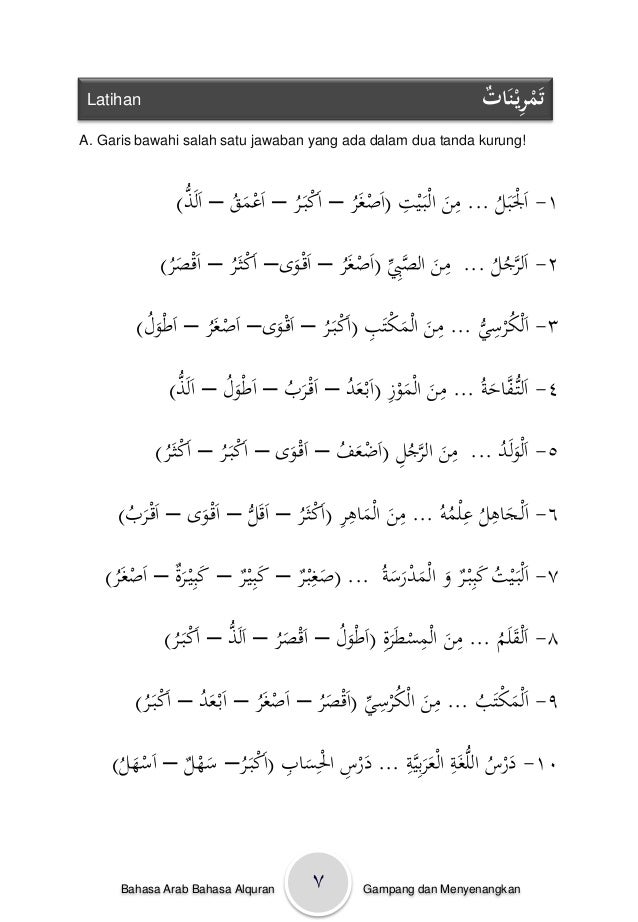 Latihan تَمْرِيْنَاتٌ
A. Garis bawahi salah satu jawaban yang ada dalam dua tanda kurung!
١- اَلْجَبَلُ ... مِنَ الْبَيْتِ (اَصْغَرُ – اَكْبَرُ – اَعْمَقُ – اَلَذُّ)
٢- اَلرَّجُلُ ... مِنَ الصَّبِيِّ (اَصْغَرُ – اَقْوَى– اَكْثَرُ – اَقْصَرُ)
٣- اَلْكُرْسِيُّ ... مِنَ الْمَكْتَبِ (اَكْبَرُ – اَقْوَى– اَصْغَرُ – اَطْوَلُ)
٤- اَلتُّفَّاحَةُ ... مِنَ الْمَوْزِ (اَبْعَدُ – اَقْرَبُ – اَطْوَلُ – اَلَذُّ)
٥- اَلْوَلَدُ ... مِنَ الرَّجُلِ (اَضْعَفُ – اَقْوَى – اَكْبَرُ – اَكْثَرُ)
٦- اَلْجَاهِلُ عِلْمُهُ ... مِنَ الْمَاهِرِ (اَكْثَرُ – اَقَلُّ – اَقْوَى – اَقْرَبُ)
٧- اَلْبَيْتُ كَبِيْرٌ وَ الْمَدْرَسَةُ ... (صَغِيْرٌ – كَبِيْرٌ – كَبِيْرَةٌ – اَصْغَرُ)
٨- اَلْقَلَمُ ... مِنَ الْمِسْطَرَةِ (اَطْوَلُ – اَقْصَرُ – اَلَذُّ – اَكْبَرُ)
٩- اَلْمَكْتَبُ ... مِنَ الْكُرْسِيِّ (اَقْصَرُ – اَصْغَرُ – اَبْعَدُ – اَكْبَرُ)
١٠- دَرْسُ اللُّغَةِ الْعَرَبِيَّةِ ... دَرْسِ الْحِسَابِ (اَكْبَرُ– سَهْلٌ – اَسْهَلُ)
Bahasa Arab Bahasa Alquran ٧ Gampang dan Menyenangkan